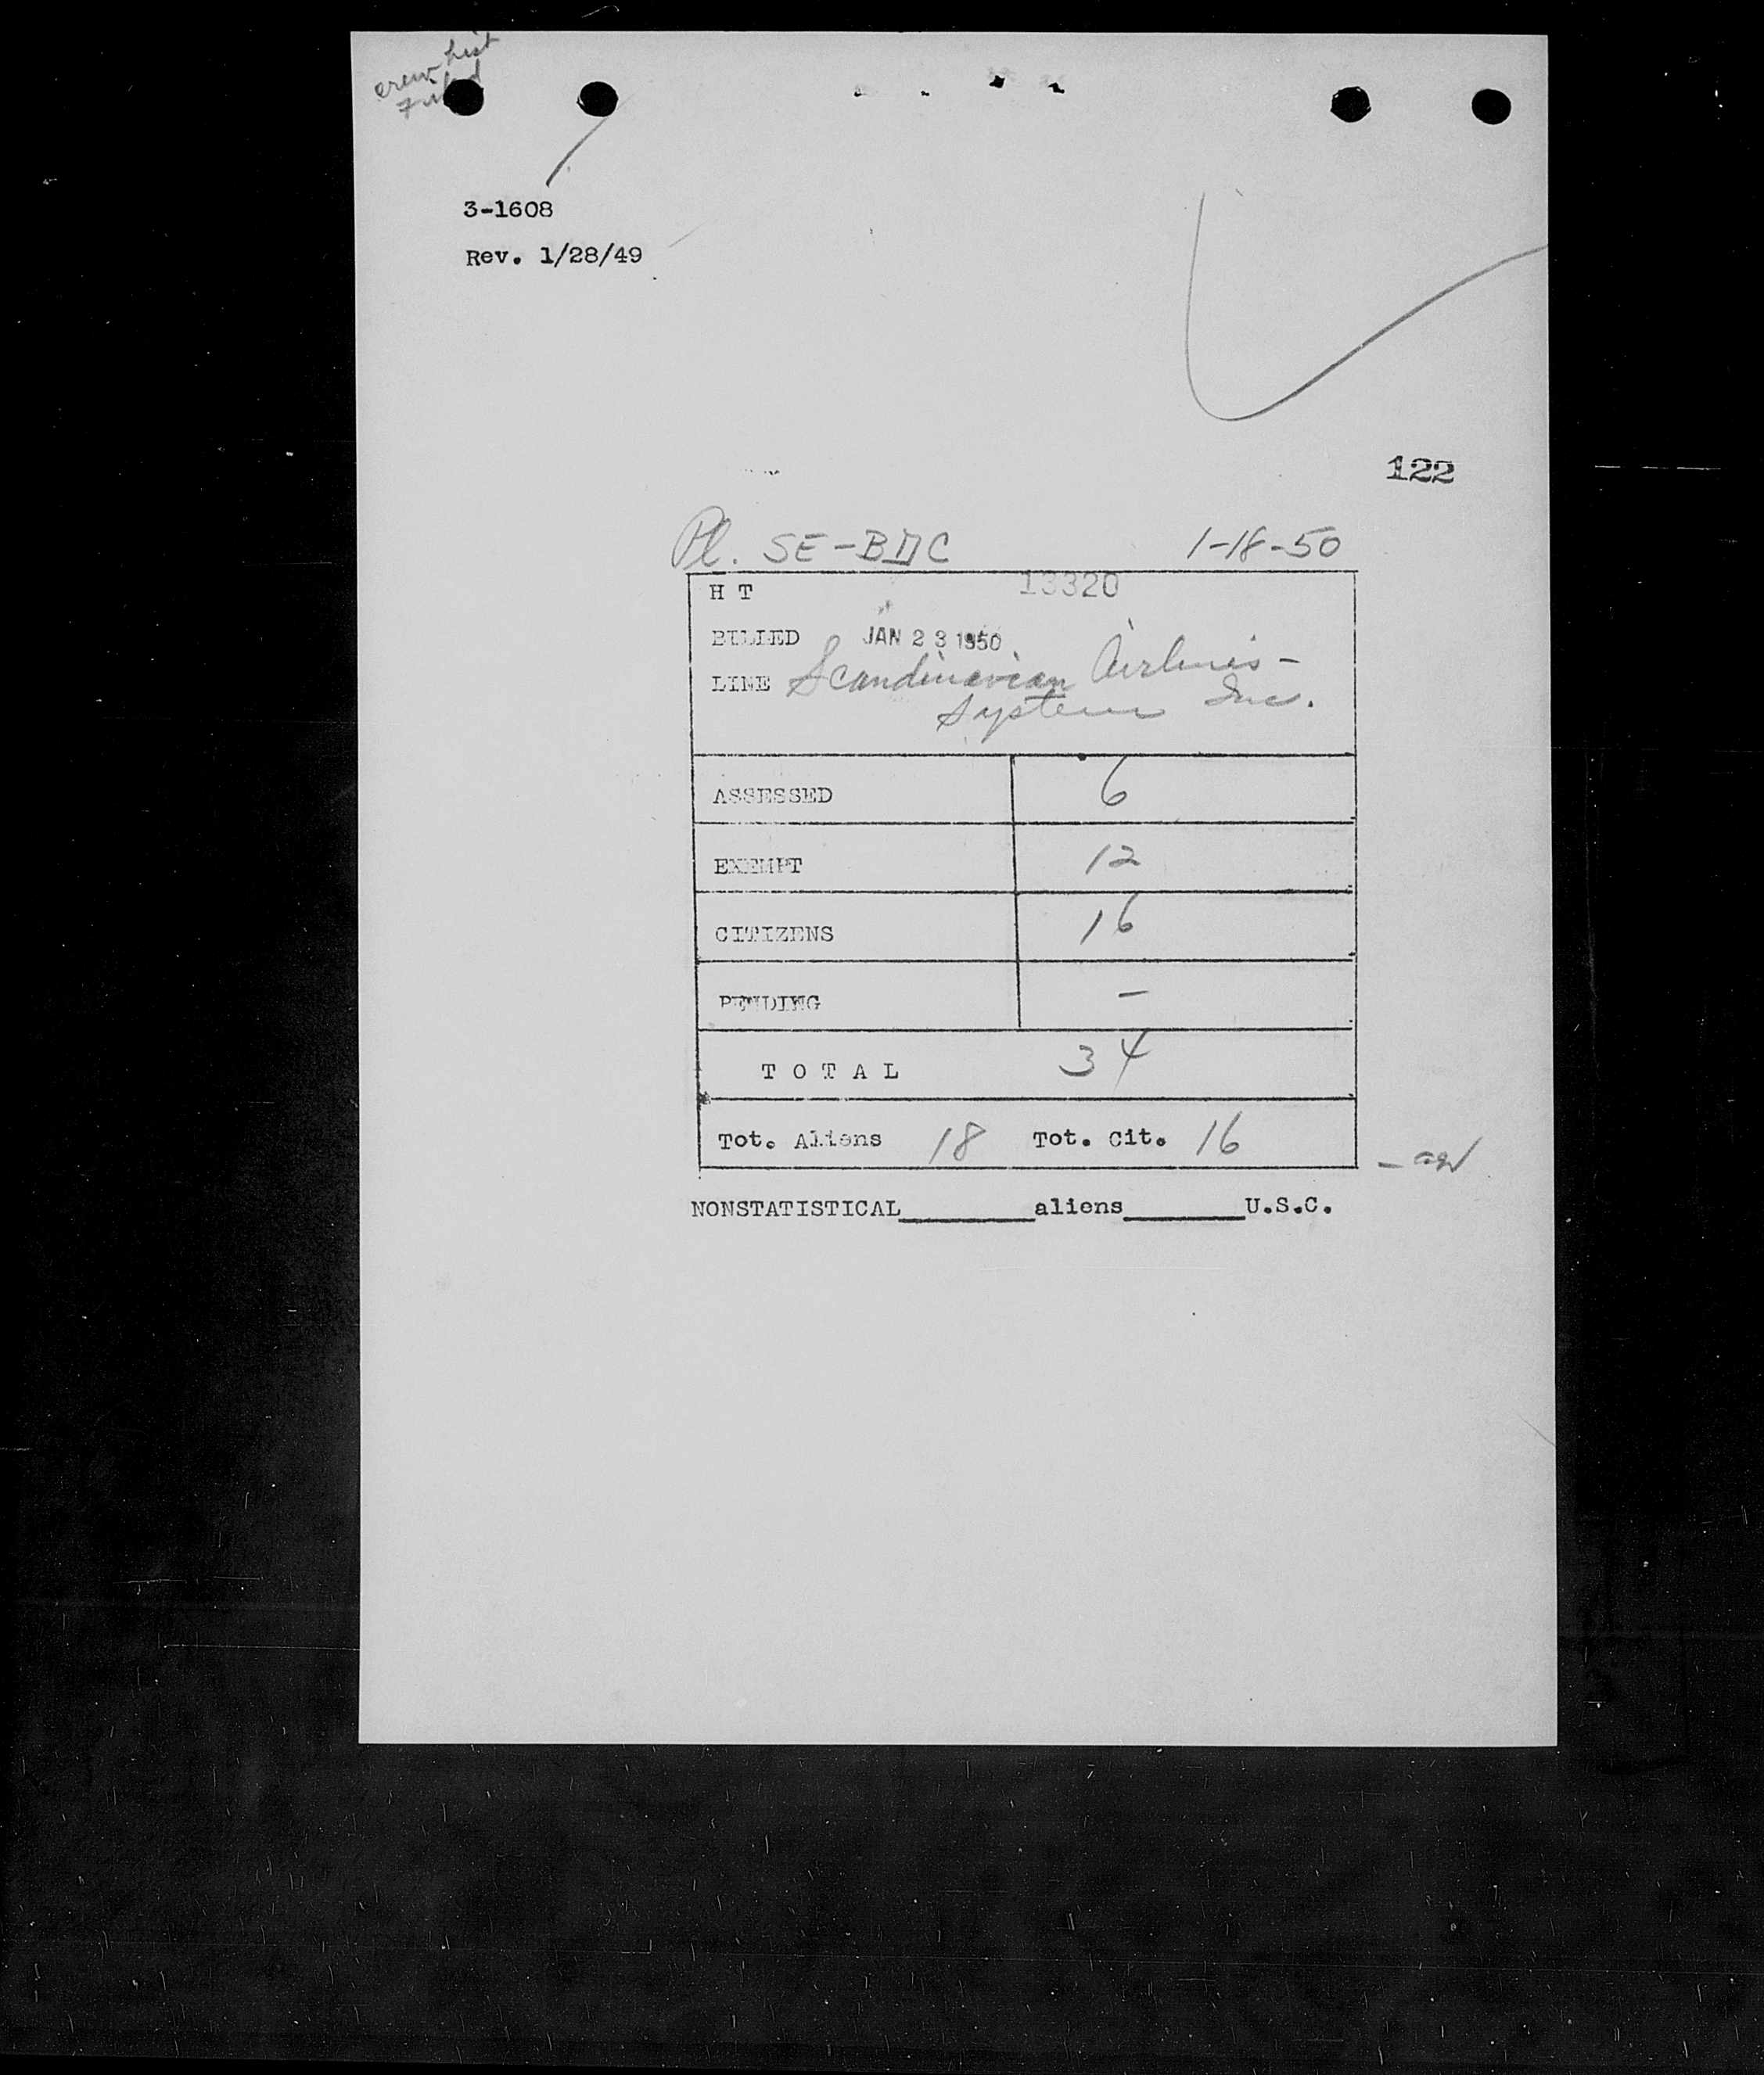 crew list
Filed
3-1608
Rev. 1/28/49
122
Pl. SE-BDC 1-18-50
H T 13320
BILLED JAN 23 1950
LINE Scandinavian Airlines-
System Inc.
ASSESSED 6
EXEMPT 12
CITIZENS 16
PENDING -
T O T A L 34
Tot. Aliens 18 Tot. Cit. 16
NONSTATISTICAL________aliens________U.S.C.